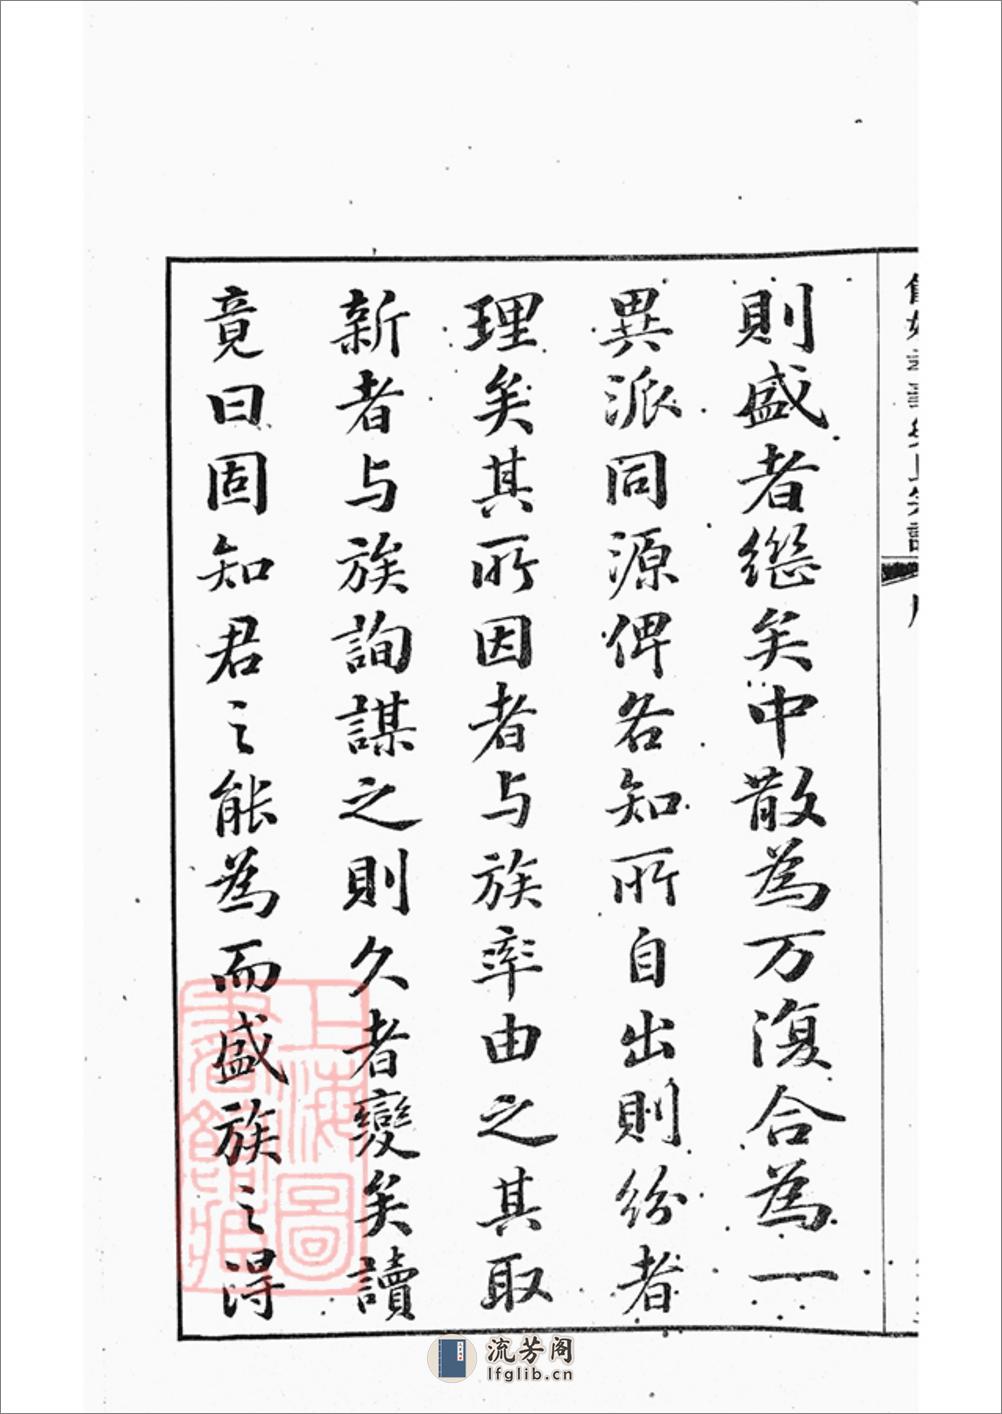 則盛者繼矣中散為万復合為一
異派同源俾各知所自出則紛者
理矣其所因者与族率由之其取
新者与族詢謀之則久者變矣讀
竟曰固知君之能為而盛族之得
上海圖書館藏
流芳阁
lfglib.cn